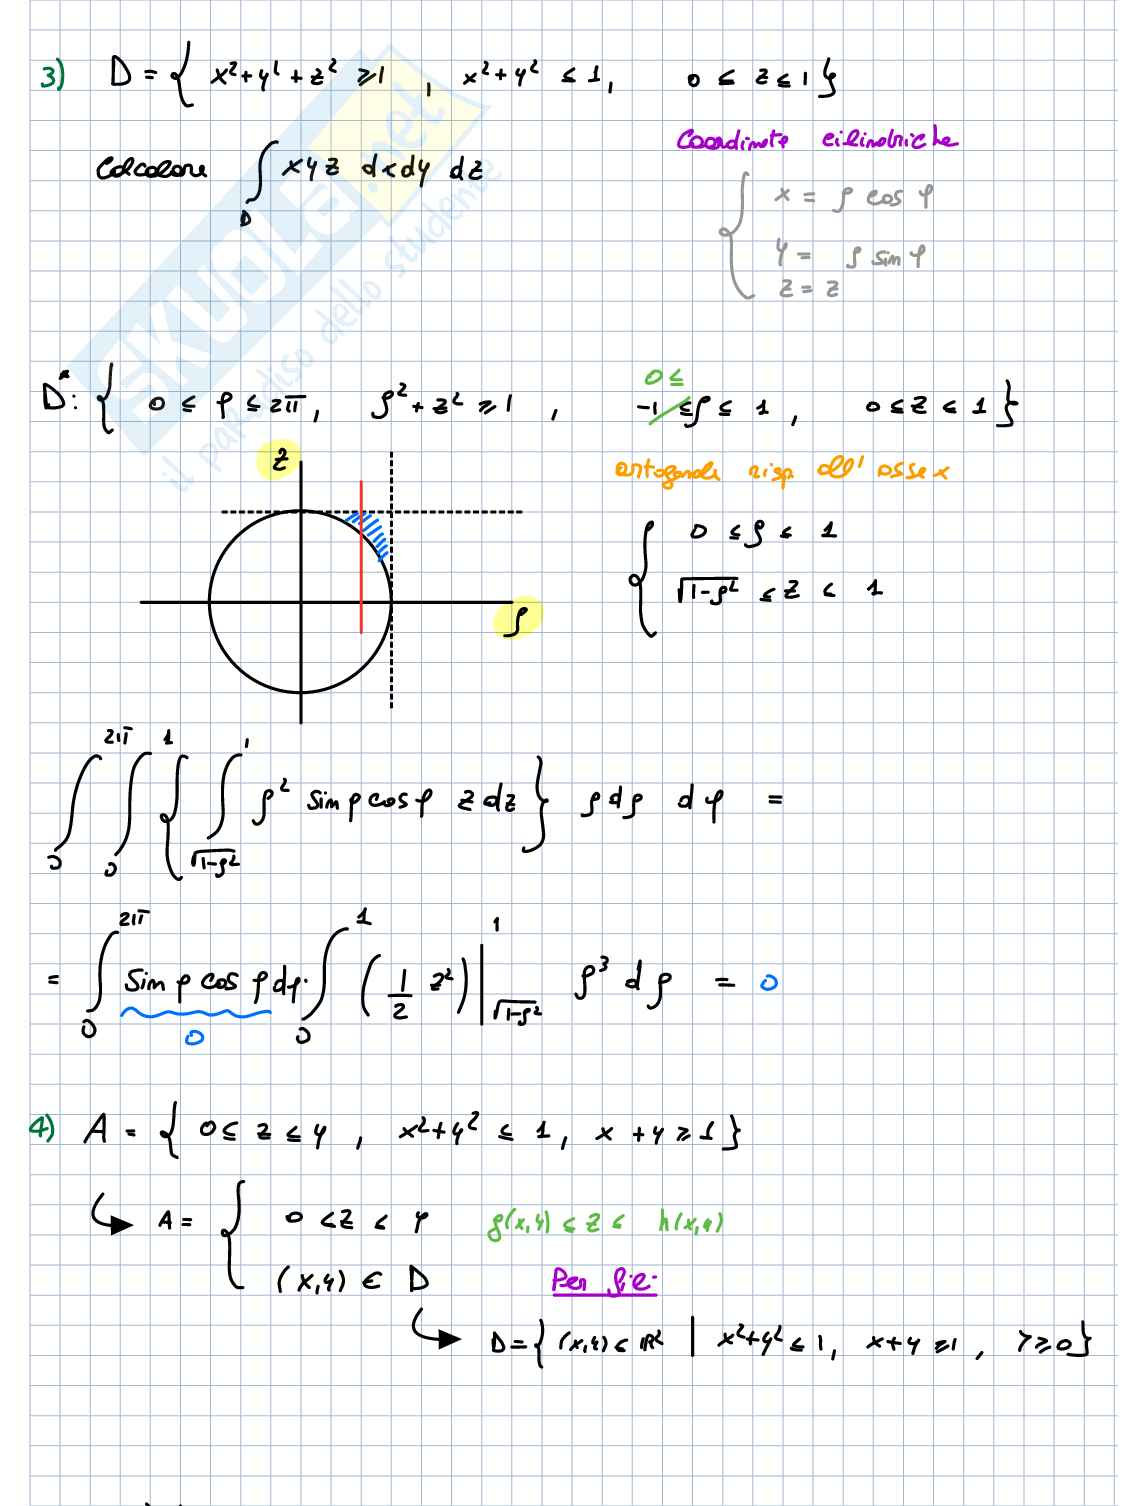 3) D = { x²+y²+z² ≥ 1 , x²+y² ≤ 1, 0 ≤ z ≤ 1 }
Coordinate cilindriche
Calcolare ∫_D x y z dx dy dz
{ x = ρ cos φ
y = ρ sin φ
z = z
SKUOLA.net
il paradiso dello studente
0 ≤
D*: { 0 ≤ φ ≤ 2π, ρ²+z² ≥ 1 , -1 ≤ ρ ≤ 1 , 0 ≤ z ≤ 1 }
z
ortogonale risp all' asse x
{ 0 ≤ ρ ≤ 1
√(1-ρ²) ≤ z ≤ 1
ρ
∫_0^{2π} ∫_0^1 { ∫_{√(1-ρ²)}^1 ρ² sin φ cos φ z dz } ρ dρ dφ =
= ∫_0^{2π} sin φ cos φ dφ · ∫_0^1 (1/2 z²) |_{√(1-ρ²)}^1 ρ³ dρ = 0
0
4) A = { 0 ≤ z ≤ y , x²+y² ≤ 1, x + y ≥ 1 }
↳ A = { 0 ≤ z ≤ y g(x,y) ≤ z ≤ h(x,y)
(x,y) ∈ D Per fili
↳ D = { (x,y) ∈ ℝ² | x²+y² ≤ 1, x+y ≥ 1 , y ≥ 0 }